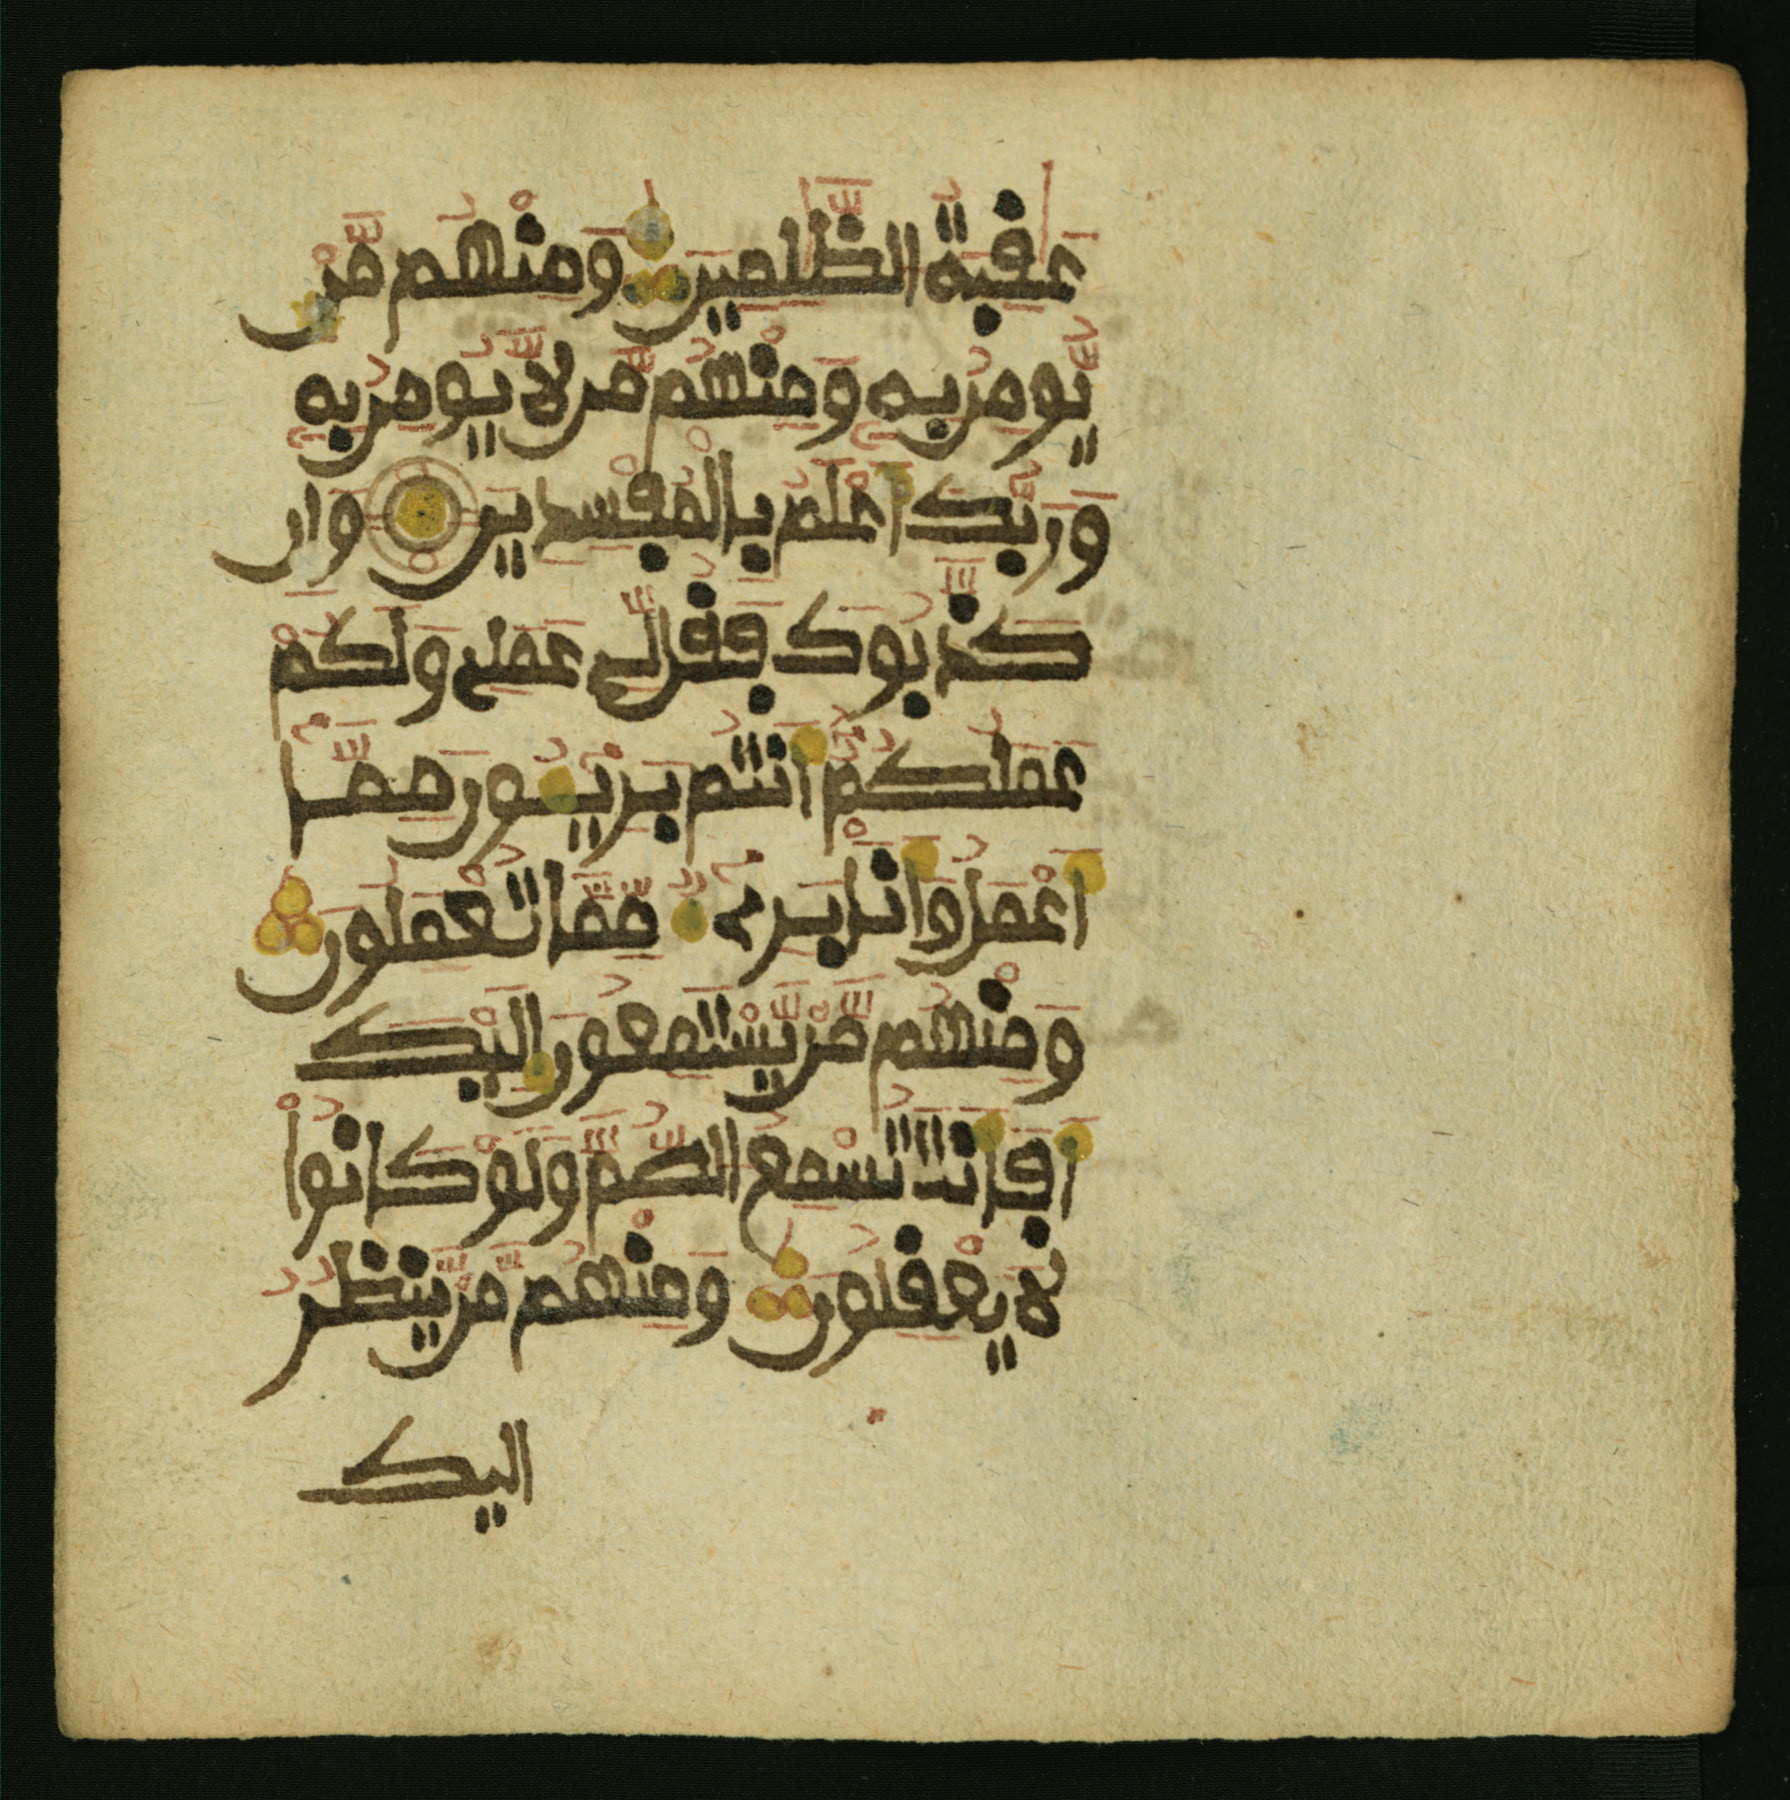 عَٰقِبَةُ الظَّٰلِمِينَ وَمِنْهُم مَّنْ
يُّومِنُ بِهِ وَمِنْهُم مَّن لَّا يُومِنُ بِهِ
وَرَبُّكَ أَعْلَمُ بِالْمُفْسِدِينَ وَإِن
كَذَّبُوكَ فَقُل لِّي عَمَلِي وَلَكُمْ
عَمَلُكُمْ أَنتُم بَرِيـُٔونَ مِمَّا
أَعْمَلُ وَأَنَا بَرِيءٌ مِّمَّا تَعْمَلُونَ
وَمِنْهُم مَّنْ يَّسْتَمِعُونَ إِلَيْكَ
أَفَأَنتَ تُسْمِعُ الصُّمَّ وَلَوْ كَانُواْ
لَا يَعْقِلُونَ وَمِنْهُم مَّنْ يَّنظُرُ
اليك